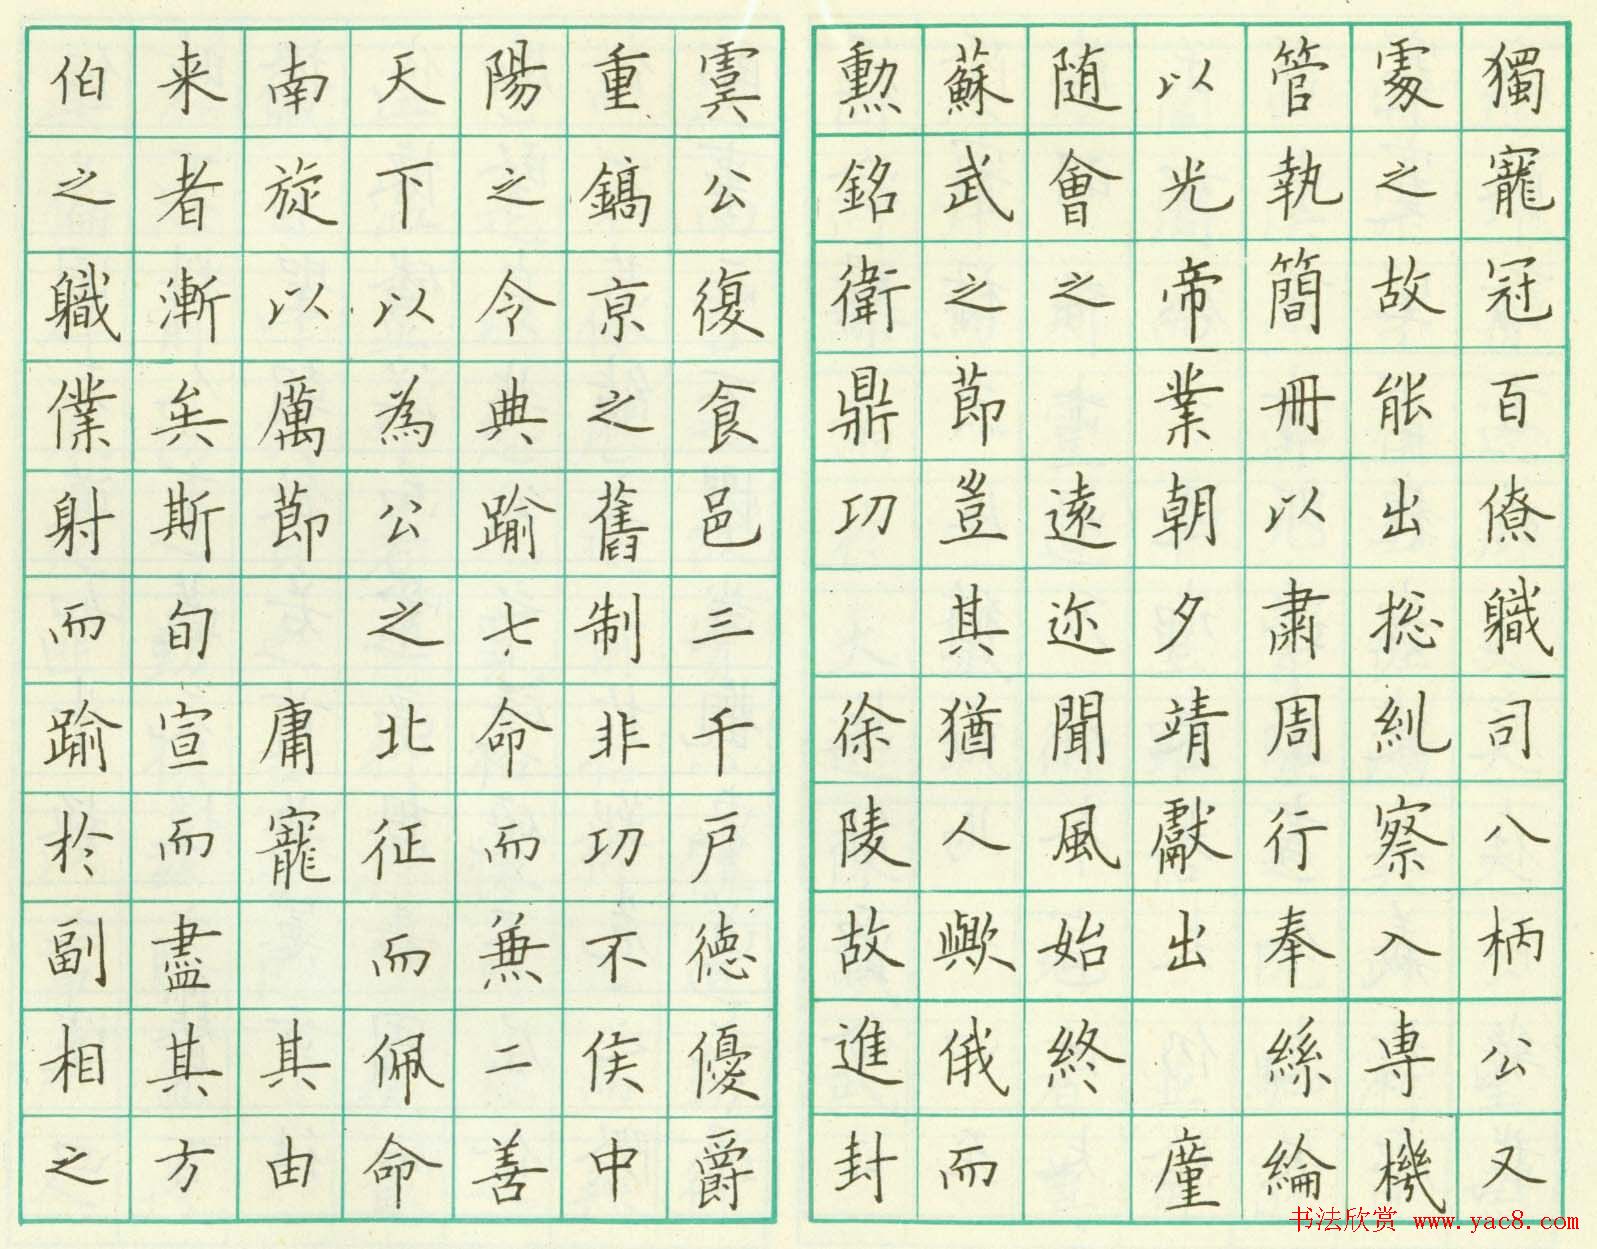 獨寵冠百僚職司八柄公又
䖏之故能出揔糺察入専機
管執簡冊以肅周行奉絲綸
以光帝業朝夕靖獻出
随會之遠迩聞風始終
蘇武之節豈其猶人歟俄而
勲銘衛鼎功徐陵故進封
公復食邑三千戸徳優爵
重鎬亰之舊制非功不侯中
陽之令典踰七命而兼二善
天下以為公之北征而佩命
南旋以厲節庸寵其由
来者漸矣斯旬宣而盡其方
伯之職僕射而踰扵副相之
書法欣赏 www.yac8.com